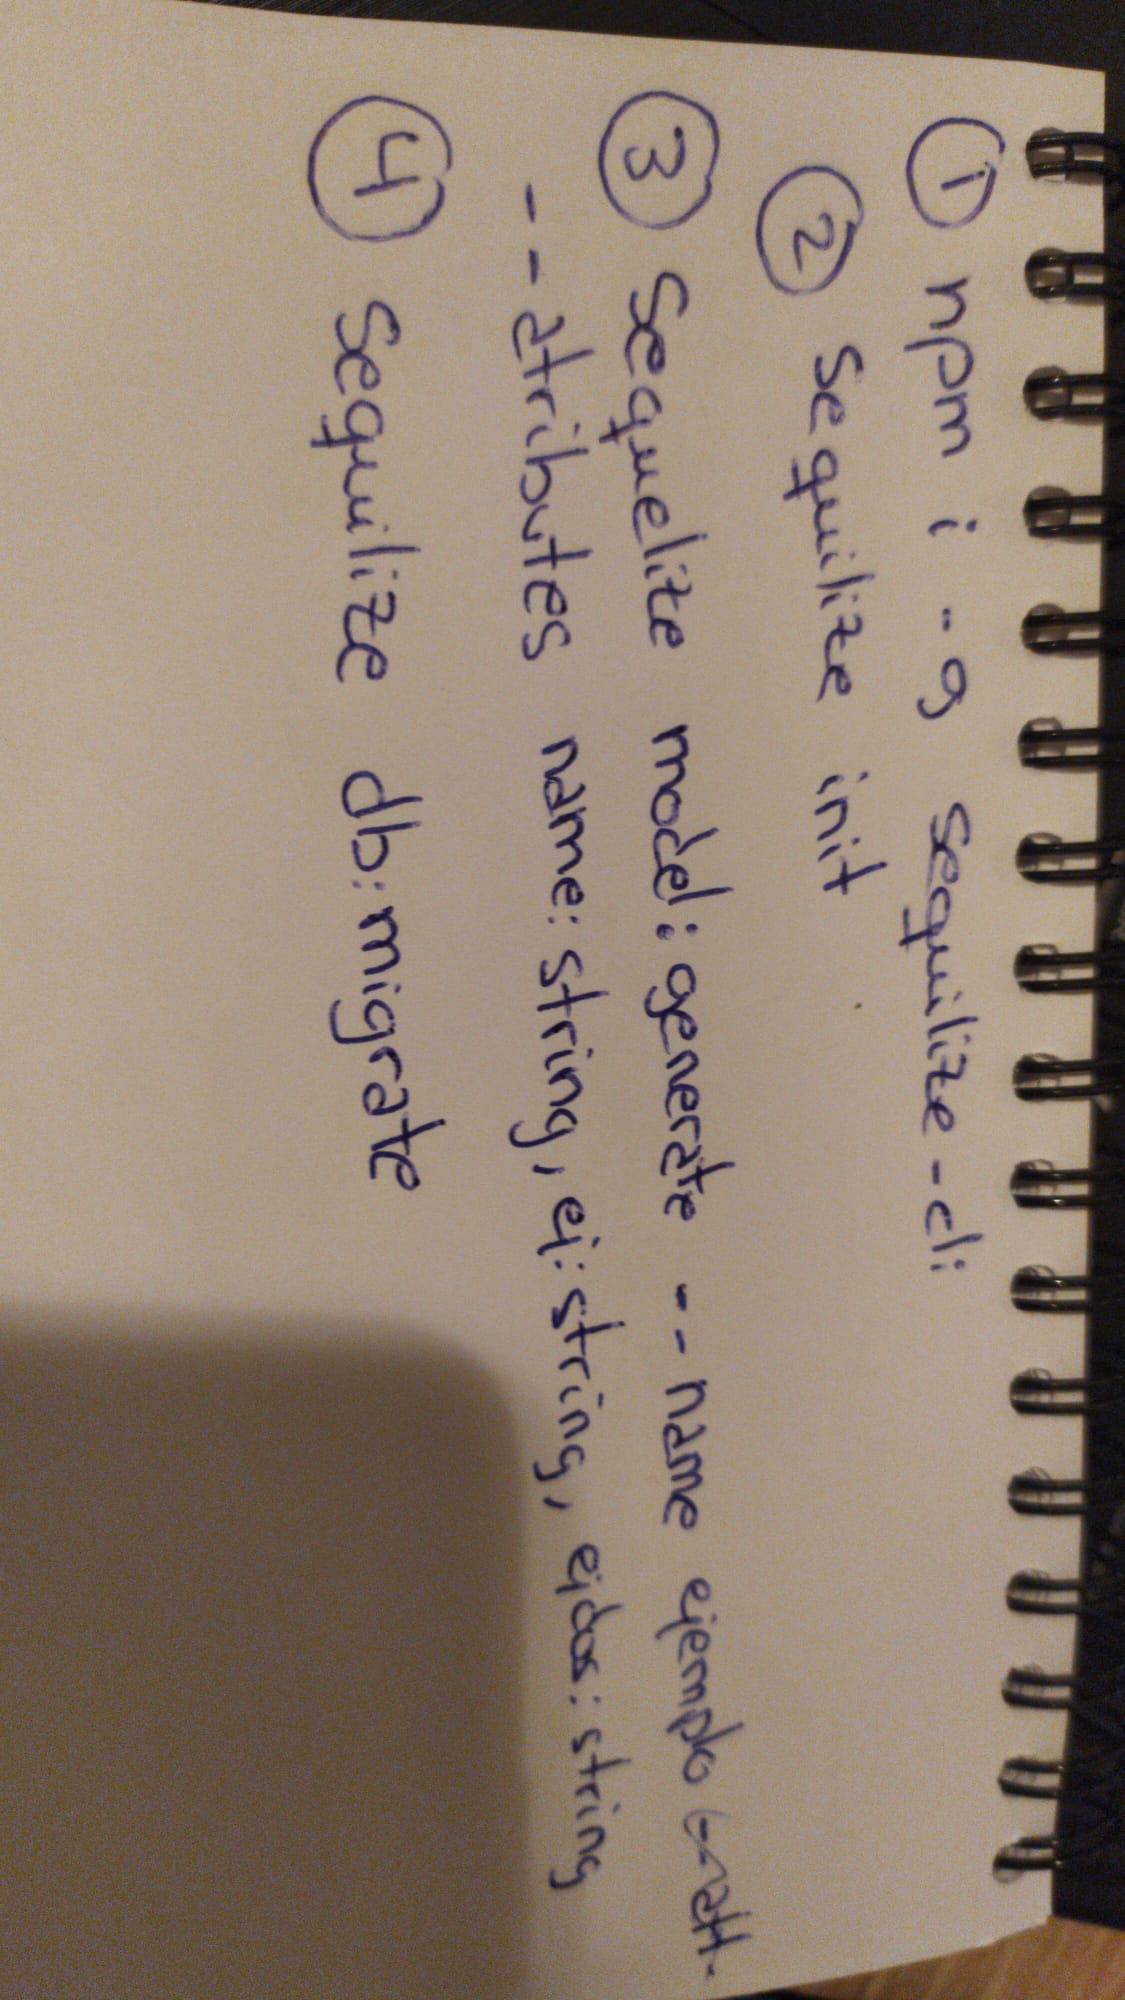 ① npm i -g sequilize-cli
② Sequilize init
③ Sequelize model:generate --name ejemplo --att.
--atributes name:string, ej:string, ejdos:string
④ Sequilize db:migrate